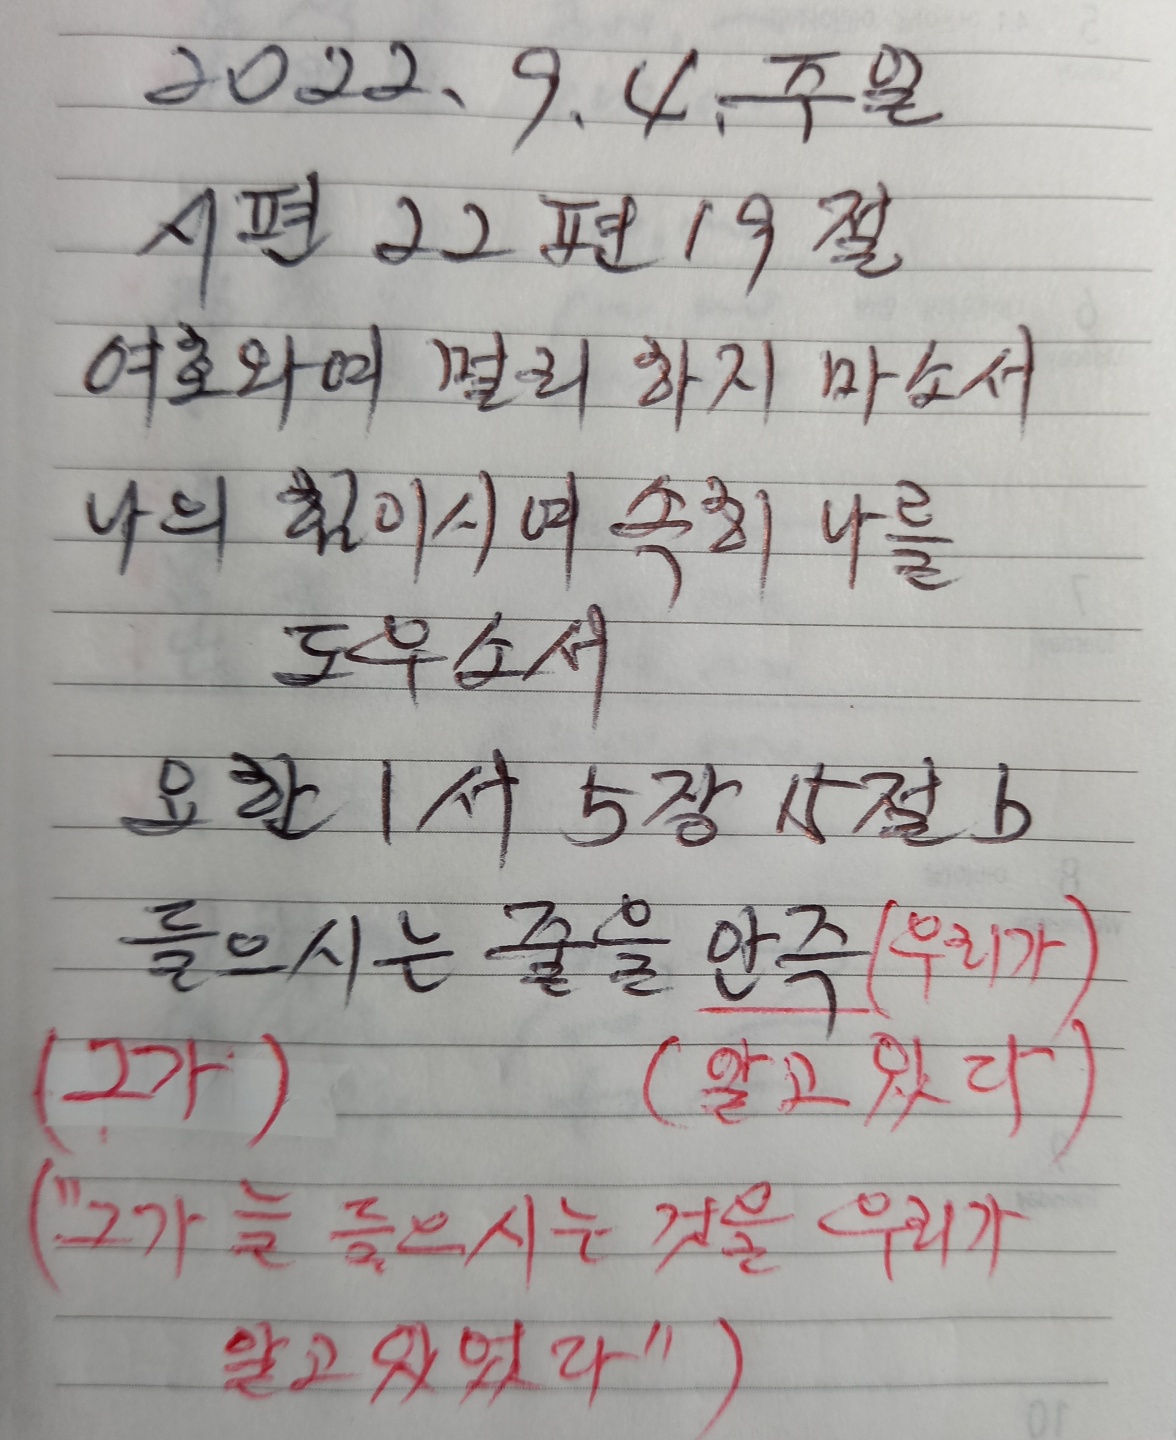 2022. 9. 4. 주일
시편 22편 19절
여호와여 멀리 하지 마소서
나의 힘이시여 속히 나를
도우소서
요한1서 5장 15절 b
들으시는 줄을 안즉(우리가)
(그가) (알고 있다)
("그가 늘 들으시는 것을 우리가
알고 있었다")